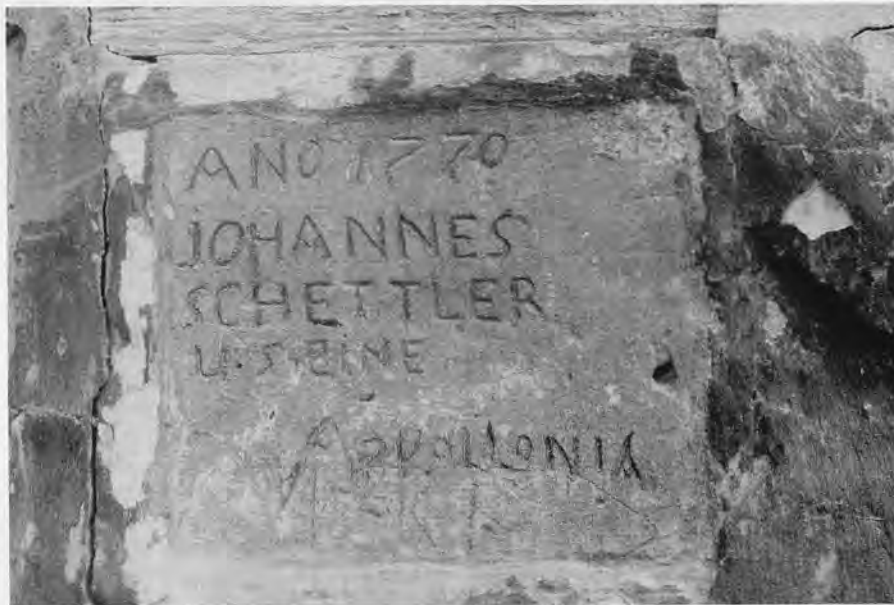 ANO 1770
JOHANNES
SCHETTLER
U. SEINE
APPOLLONIA